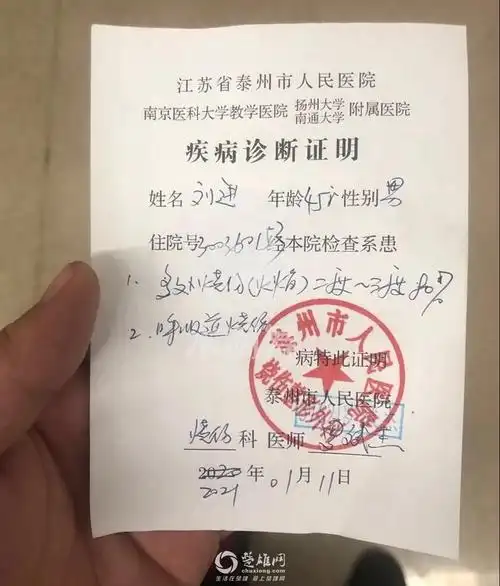 江苏省泰州市人民医院
南京医科大学教学医院 扬州大学 南通大学 附属医院
疾病诊断证明
姓名 刘进 年龄 45岁 性别 男
住院号 30036015 经本院检查系患
1. 多处烧伤(火焰)二度~三度 80%
2. 呼吸道烧伤
病特此证明
泰州市人民医院
烧伤 科 医师
2023 年 01月11日
2021
泰州市人民医院
烧伤整形外科
楚雄网
chuxiong.com
生活在楚雄 爱上楚雄网